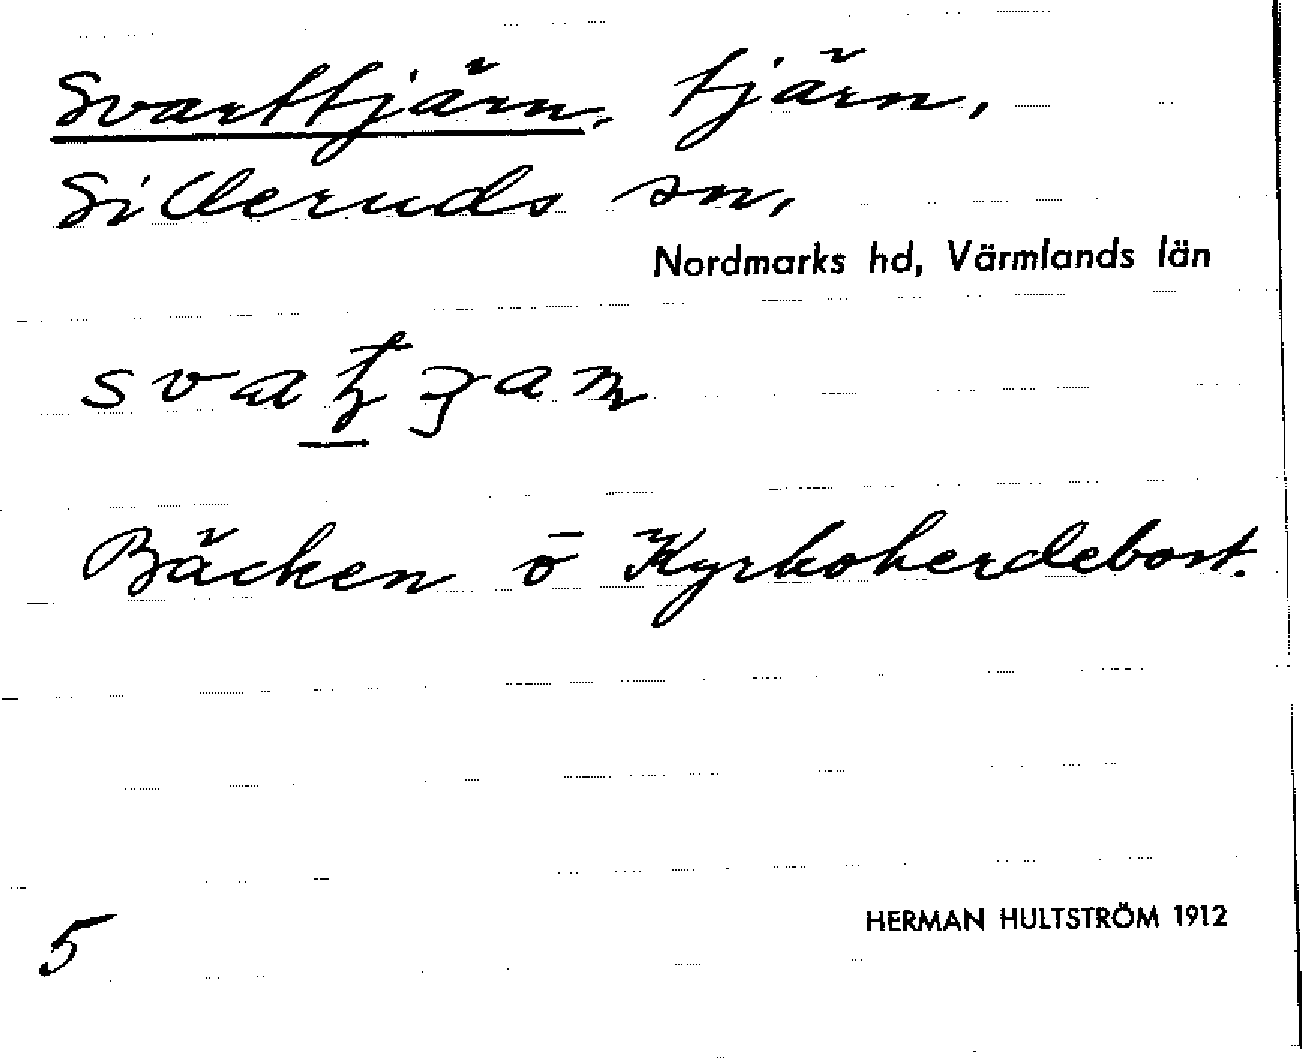 Svarttjärn, tjärn,
Silleruds sn,
Nordmarks hd, Värmlands län
Bäcken ö Kyrkoherdebost.
5
HERMAN HULTSTRÖM 1912